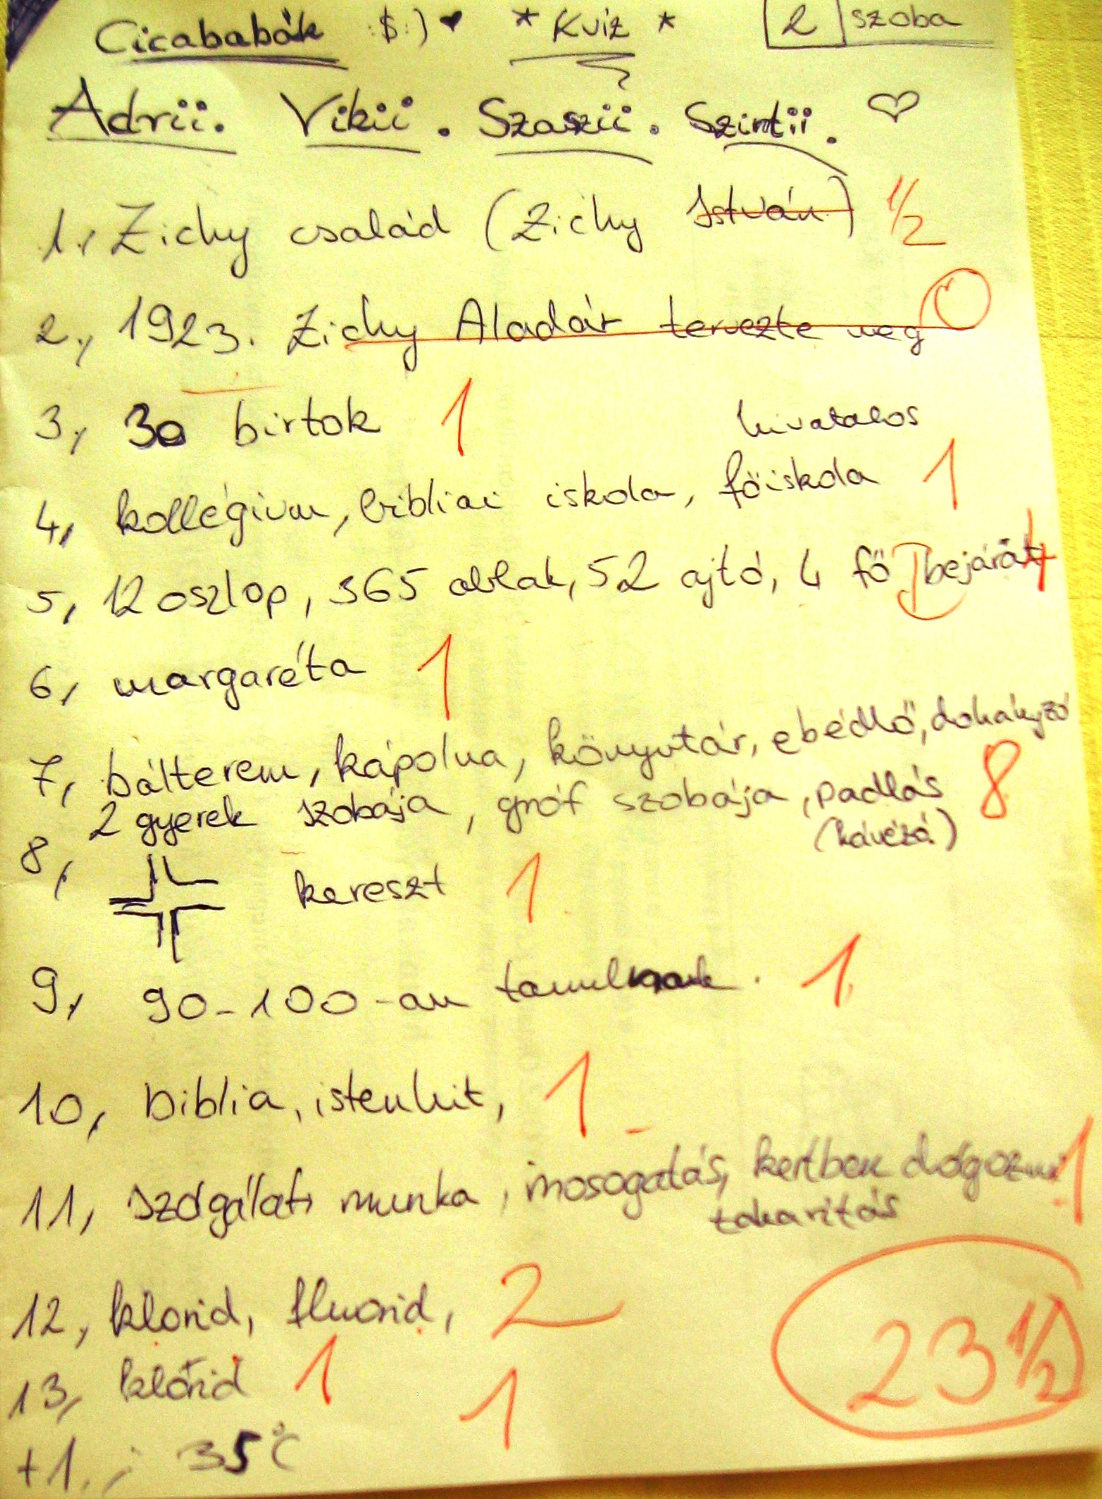 Cicababák :$:) ♥ * Kvíz * 2 szoba
Adrii. Vikii. Szaszii. Szintii. ♡
1, Zichy család (Zichy István) 1/2
2, 1923. Zichy Aladár tervezte meg 0
3, 30 birtok 1
hivatalos
4, kollégium, bibliai iskola, főiskola 1
5, 12 oszlop, 365 ablak, 52 ajtó, 4 fő bejárat 4
6, margaréta 1
7, bálterem, kápolna, könyvtár, ebédlő, dohányzó
2 gyerek szobája, gróf szobája, padlás 8
(kávézó)
8, kereszt 1
9, 90-100-an tanulnak. 1
10, biblia, istenhit, 1
11, szolgálati munka, mosogatás, kertben dolgozni 1
takarítás
12, klorid, fluorid, 2
13, klórid 1
+1, 35°C 1
23 1/2